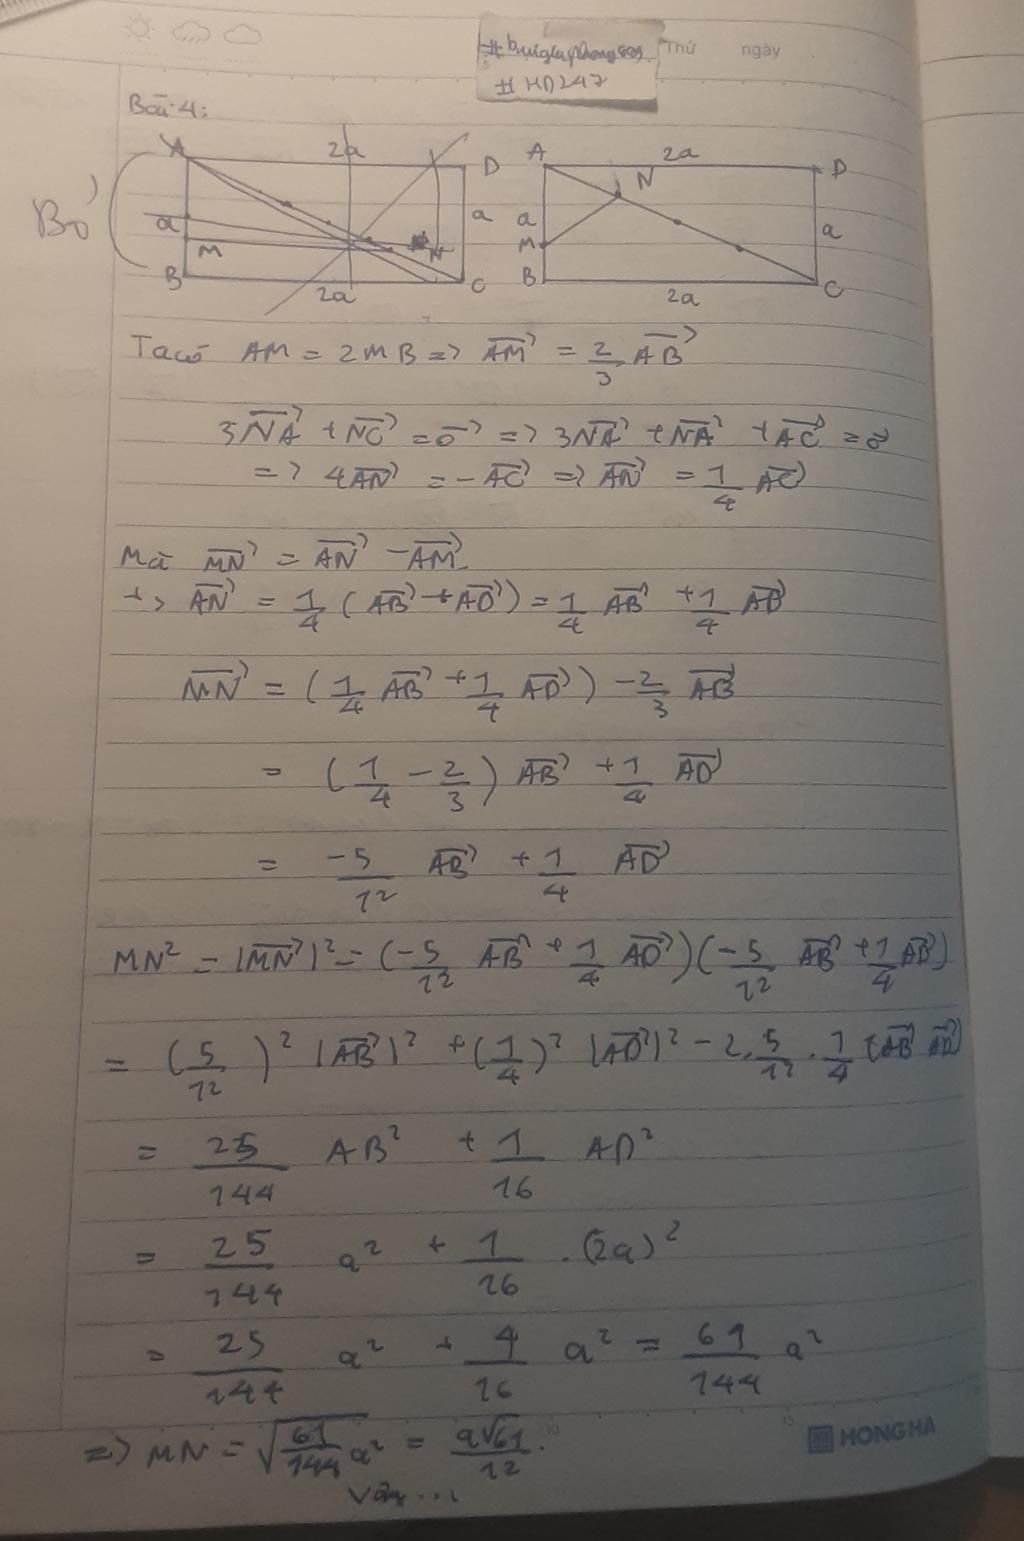 Thứ ngày
# HD247
Bài 4:
A 2a D A N 2a D
Bỏ a a a a
M M
B 2a N C B 2a C
Ta có AM = 2MB => \overrightarrow{AM} = \frac{2}{3} \overrightarrow{AB}
3\overrightarrow{NA} + \overrightarrow{NC} = \overrightarrow{0} => 3\overrightarrow{NA} + \overrightarrow{NA} + \overrightarrow{AC} = \overrightarrow{0}
=> 4\overrightarrow{AN} = -\overrightarrow{AC} => \overrightarrow{AN} = \frac{1}{4} \overrightarrow{AC}
Mà \overrightarrow{MN} = \overrightarrow{AN} - \overrightarrow{AM}
+> \overrightarrow{AN} = \frac{1}{4} (\overrightarrow{AB} + \overrightarrow{AD}) = \frac{1}{4} \overrightarrow{AB} + \frac{1}{4} \overrightarrow{AD}
\overrightarrow{MN} = (\frac{1}{4} \overrightarrow{AB} + \frac{1}{4} \overrightarrow{AD}) - \frac{2}{3} \overrightarrow{AB}
= (\frac{1}{4} - \frac{2}{3}) \overrightarrow{AB} + \frac{1}{4} \overrightarrow{AD}
= \frac{-5}{12} \overrightarrow{AB} + \frac{1}{4} \overrightarrow{AD}
MN² = |\overrightarrow{MN}|² = (\frac{-5}{12} \overrightarrow{AB} + \frac{1}{4} \overrightarrow{AD})(\frac{-5}{12} \overrightarrow{AB} + \frac{1}{4} \overrightarrow{AD})
= (\frac{5}{12})² |\overrightarrow{AB}|² + (\frac{1}{4})² |\overrightarrow{AD}|² - 2.\frac{5}{12}.\frac{1}{4} (\overrightarrow{AB} \overrightarrow{AD})
= \frac{25}{144} AB² + \frac{1}{16} AD²
= \frac{25}{144} a² + \frac{1}{16} .(2a)²
= \frac{25}{144} a² + \frac{4}{16} a² = \frac{61}{144} a²
=> MN = \sqrt{\frac{61}{144} a²} = \frac{a\sqrt{61}}{12}.
Vậy...
HONG HA